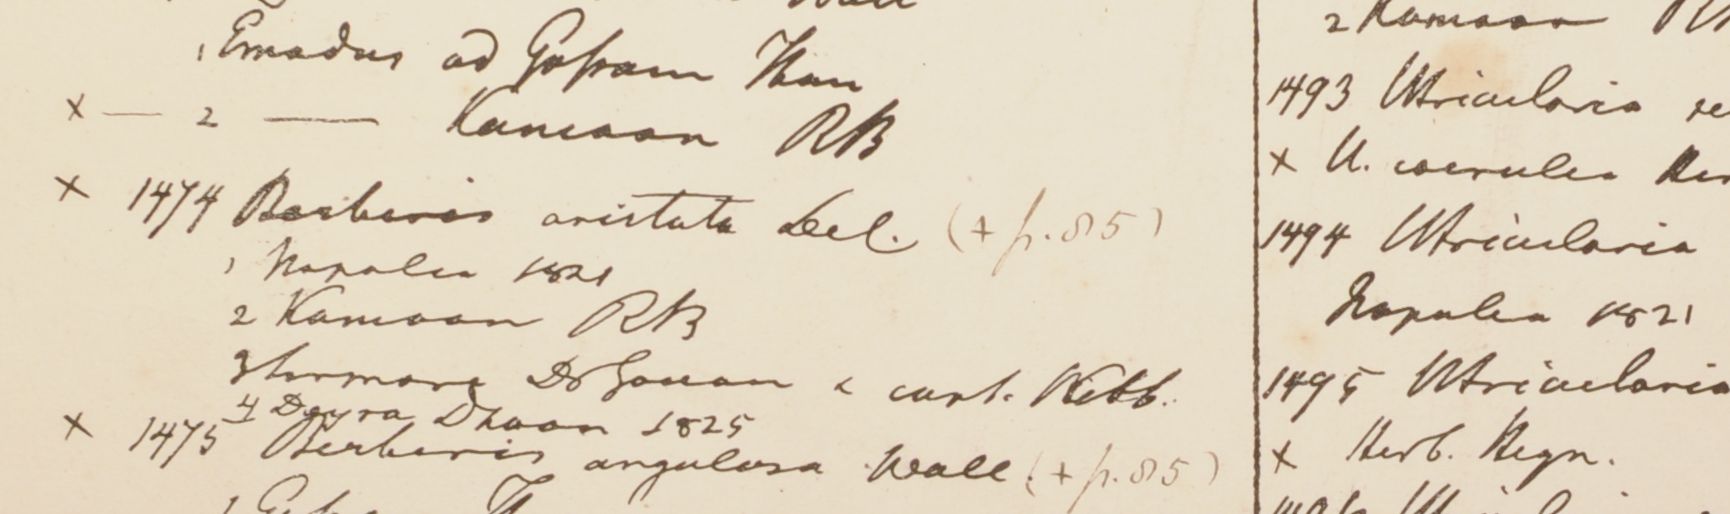 Wall
1 Emodus ad Gossam Than
x — 2 — Kamaon RB
x 1474 Berberis aristata Del. (+ p. 85)
1 Napalia 1821
2 Kamaon RB
3 Sirmore Dr Govan & capt. Webb.
4 Deyra Dhoon 1825
x 1475 Berberis angulosa Wall (+ p. 85)
2 Kamaon
1493 Utricularia
x U. coerulea
1494 Utricularia
Napalia 1821
1495 Utricularia
x Herb. Heyn.